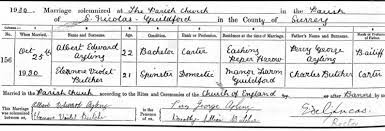 1930 Marriage solemnized at The Parish Church in the Parish
of S. Nicolas - Guildford in the County of Surrey
When Married. Name and Surname. Age. Condition. Rank or Profession. Residence at the time of Marriage. Father's Name and Surname. Rank or Profession of Father.
156
Oct 25th Albert Edward Ayling 22 Bachelor Carter Eashing Peper Harow Percy George Ayling Bailiff
1930 Eleanor Violet Butcher 21 Spinster Domestic Manor Farm Guildford Charles Butcher Carter
Married in the Parish Church according to the Rites and Ceremonies of the Church of England after Banns by me
This Marriage was solemnized between us,
Albert Edward Ayling
Eleanor Violet Butcher
in the Presence of us,
Percy George Ayling
Dorothy Butcher
Rector